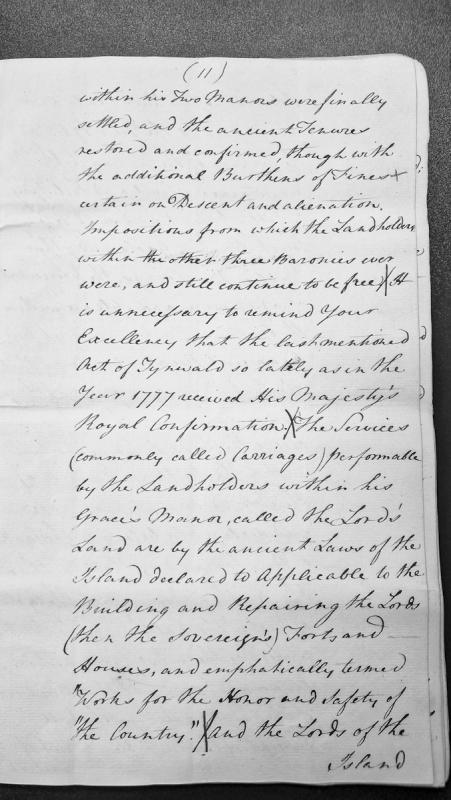 (11)
within his Two Manors were finally
settled, and the ancient Tenures
restored and confirmed, though with
the additional Burthens of Fines
certain on Descent and alienation.
Impositions from which the Landholders
within the other three Baronies ever
were, and still continue to be free. It
is unnecessary to remind Your
Excellency that the last mentioned
Act of Tynwald so lately as in the
Year 1777 received His Majesty's
Royal Confirmation. The Services
(commonly called Carriages) performable
by the Landholders within his
Grace's Manor, called the Lord's
Land are by the ancient Laws of the
Island declared to Applicable to the
Building and Repairing the Lords
(then the Sovereign's) Forts and
Houses, and emphatically termed
"Works for the Honor and Safety of
"the Country." And the Lords of the
Island